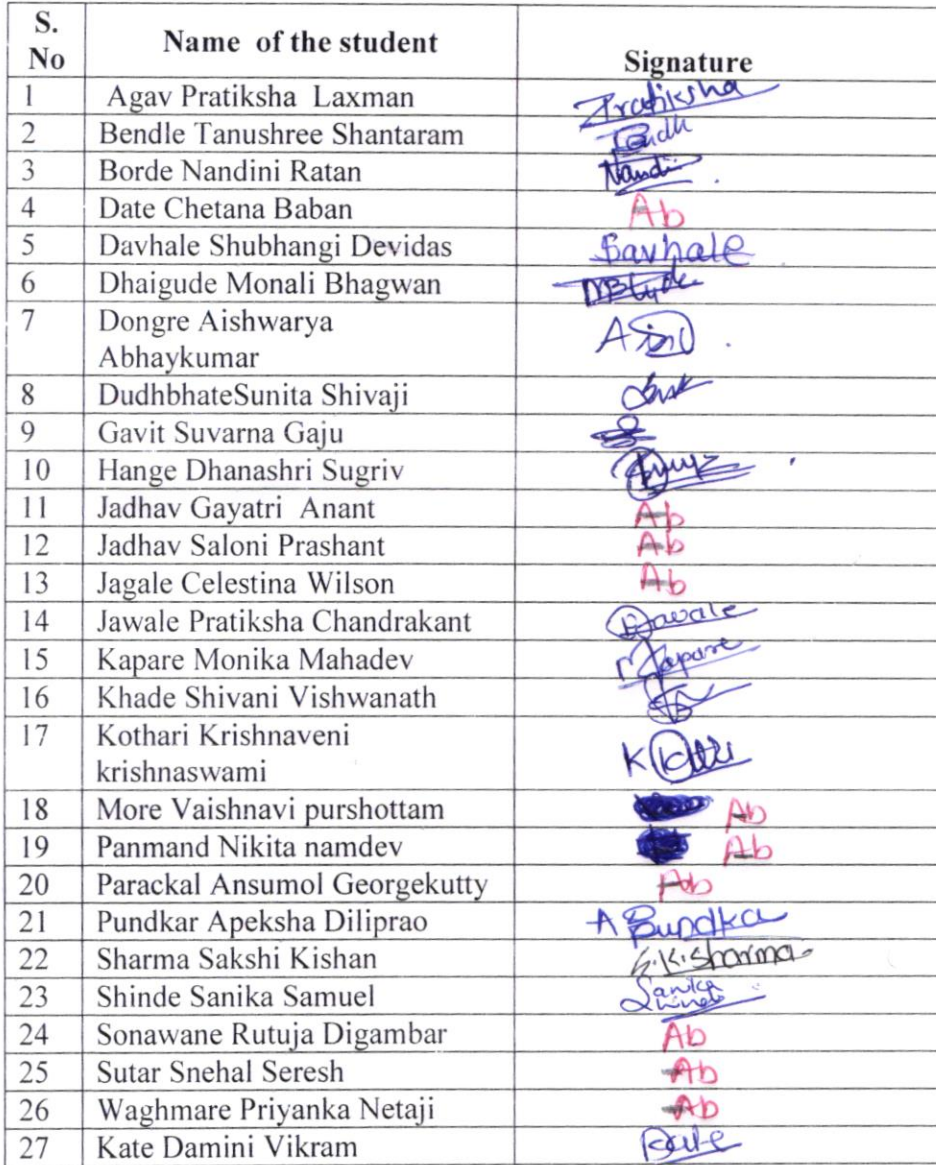 S. No Name of the student Signature
1 Agav Pratiksha Laxman Pratiksha
2 Bendle Tanushree Shantaram
3 Borde Nandini Ratan Nandi
4 Date Chetana Baban Ab
5 Davhale Shubhangi Devidas Davhale
6 Dhaigude Monali Bhagwan
7 Dongre Aishwarya
Abhaykumar
8 DudhbhateSunita Shivaji
9 Gavit Suvarna Gaju
10 Hange Dhanashri Sugriv
11 Jadhav Gayatri Anant Ab
12 Jadhav Saloni Prashant Ab
13 Jagale Celestina Wilson Ab
14 Jawale Pratiksha Chandrakant
15 Kapare Monika Mahadev MKapare
16 Khade Shivani Vishwanath
17 Kothari Krishnaveni
krishnaswami
18 More Vaishnavi purshottam Ab
19 Panmand Nikita namdev Ab
20 Parackal Ansumol Georgekutty Ab
21 Pundkar Apeksha Diliprao
22 Sharma Sakshi Kishan S.K.Sharma
23 Shinde Sanika Samuel Sanika Shinde
24 Sonawane Rutuja Digambar Ab
25 Sutar Snehal Seresh Ab
26 Waghmare Priyanka Netaji Ab
27 Kate Damini Vikram